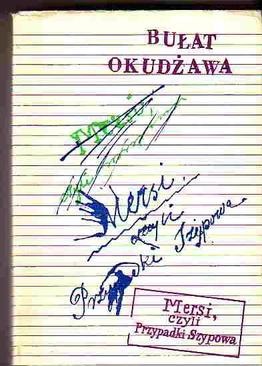 BUŁAT
OKUDŻAWA
Mersi
czyli
Mersi,
czyli
Przypadki Szypowa
Mersi,
czyli
Przypadki Szypowa